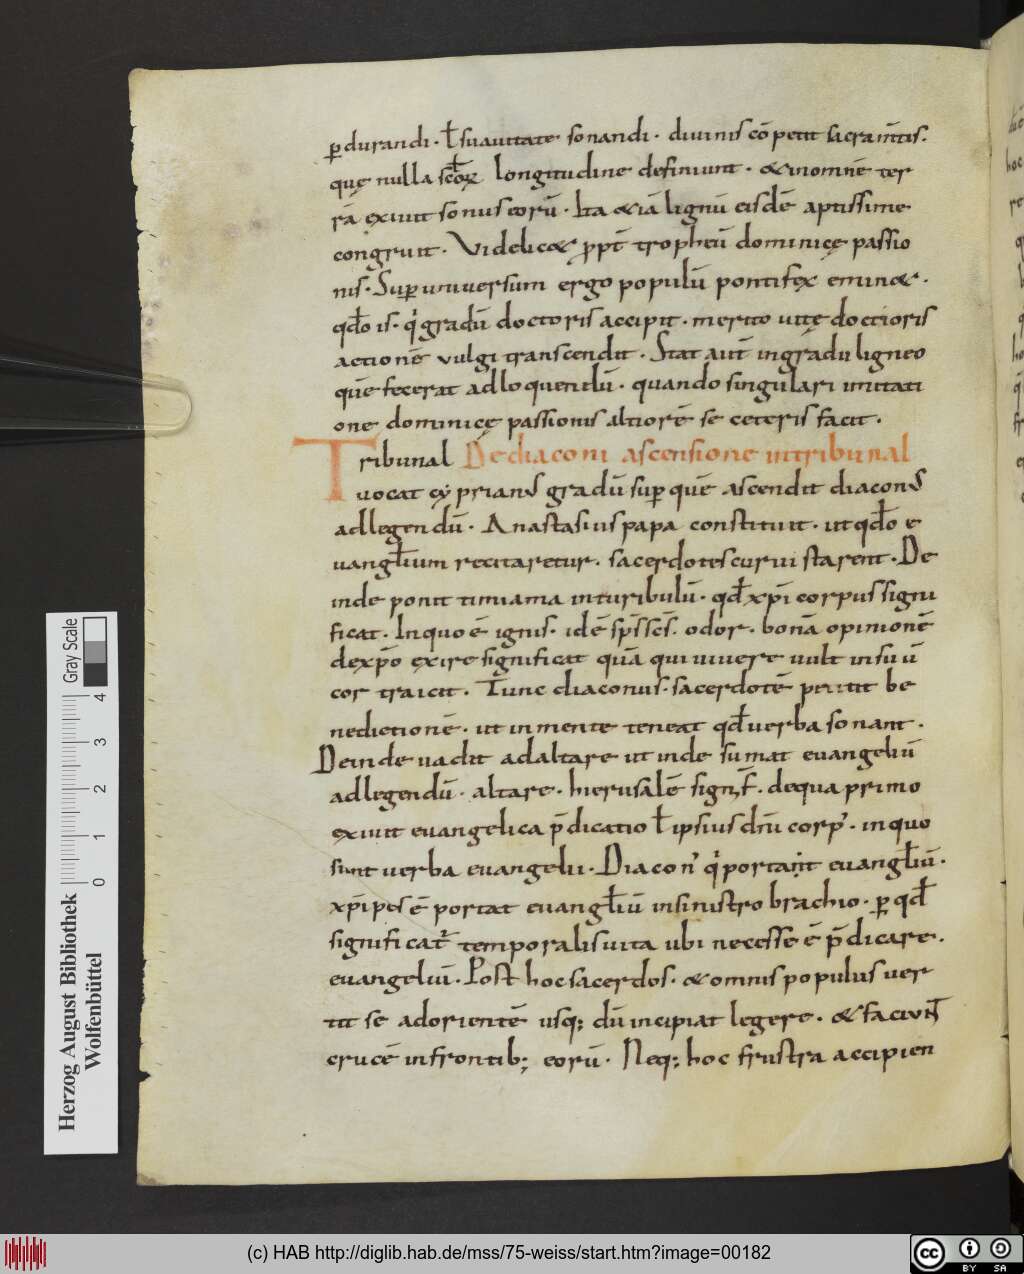 ꝑdurandi · ł suauitate sonandi · diuinis cōpetit sacram̄tis ·
quę nulla sc̄łoꝝ longitudine definiunt · & in omnē ter
rā exiuit sonus eorū · Ita & iā lignū eisdē aptissime
congruit · Videlic& ꝓpt̄ tropheū dominicę passio
nis · Suꝑ uniuersum ergo populū pontifex emin& ·
qđo is · qͥ gradū doctoris accipit · merito uitę doctioris
actionē vulgi transcendit · Stat aut̄ in gradu ligneo
quē fecerat ad loquendū · quando singulari imitati
one dominicę passionis altiorē se ceteris facit ·
Tribunal De diaconi ascensione in tribunal
uocat cyprianꝰ gradū suꝑ quē ascendit diaconꝰ
ad legendū · Anastasius papa constituit · ut qđo e
uangłium recitaretur · sacerdotes curui starent · De
inde ponit timiama in turibulū · qđ xp̄i corpus signi
ficat · In quo ē ignis · idē sp̄s sc̄s · odor · bonā opinionē
de xp̄o exire significat quā qui uiuere uult in suū
cor traicit · Tunc diaconus · sacerdotē petit be
nedictionē · ut in mente teneat qđ uerba sonant ·
Deinde uadit ad altare ut inde sumat euangeliū
ad legendū · altare · hierusalē signif̄ · de qua primo
exiuit euangelica p̄dicatio ł ipsius dn̄i corpꝰ · in quo
sunt uerba euangelii · Diaconꝰ qͥ portat euangłiū ·
xp̄i pes ē portat euangłiū in sinistro brachio · ꝑ qđ
significat᷑ temporalis uita ubi necesse ē p̄dicare ·
euangeliū · Post hoc sacerdos · & omnis populus uer
tit se ad orientē usq; dū incipiat legere · & faciunt
crucē in frontib; eorū · Neq; hoc frustra accipien
Herzog August Bibliothek
Wolfenbüttel
0 1 2 3 4
Gray Scale
(c) HAB http://diglib.hab.de/mss/75-weiss/start.htm?image=00182
cc BY SA